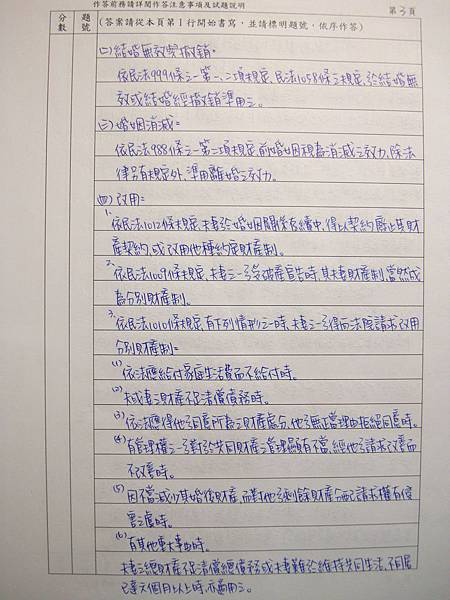 作答前務請詳閱作答注意事項及試題說明
第3頁
分數
題號
(答案請從本頁第1行開始書寫,並請標明題號,依序作答)
(二)結婚無效與撤銷=
依民法999條之一第一、二項規定,民法1058條之規定,於結婚無
效或結婚經撤銷準用之。
(三)婚姻消滅=
依民法988條之一第二項規定,前婚姻視為消滅之效力,除法
律另有規定外,準用離婚之效力。
(四)改用=
1.依民法1012條規定,夫妻於婚姻關係存續中,得以契約廢止其財
產契約,或改用他種約定財產制。
2.依民法1009條規定,夫妻之一方受破產宣告時,其夫妻財產制,當然成
為分別財產制。
3.依民法1010條規定,有下列情形之一時,夫妻之一方得向法院請求改用
分別財產制=
(1)依法應給付家庭生活費而不給付時。
(2)夫或妻之財產不足清償債務時。
(3)依法應得他方同意所為之財產處分,他方無正當理由拒絕同意時。
(4)有管理權之一方對於共同財產之管理顯有不當,經他方請求改善而
不改善時。
(5)因不當減少其婚後財產,而對他方剩餘財產分配請求權有侵
害之虞時。
(6)有其他重大事由時。
夫妻之總財產不足清償總債務或夫妻難於維持共同生活,不同居
已達六個月以上時,亦適用之。